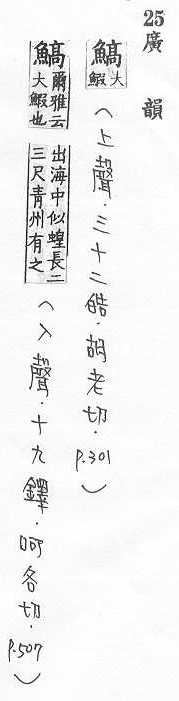 25 廣韻
鰝大鰕（上聲．三十二皓．胡老切．P.301）
鰝爾雅云大鰕也出海中似蝗長二三尺青州有之（入聲．十九鐸．呵各切．P.507）